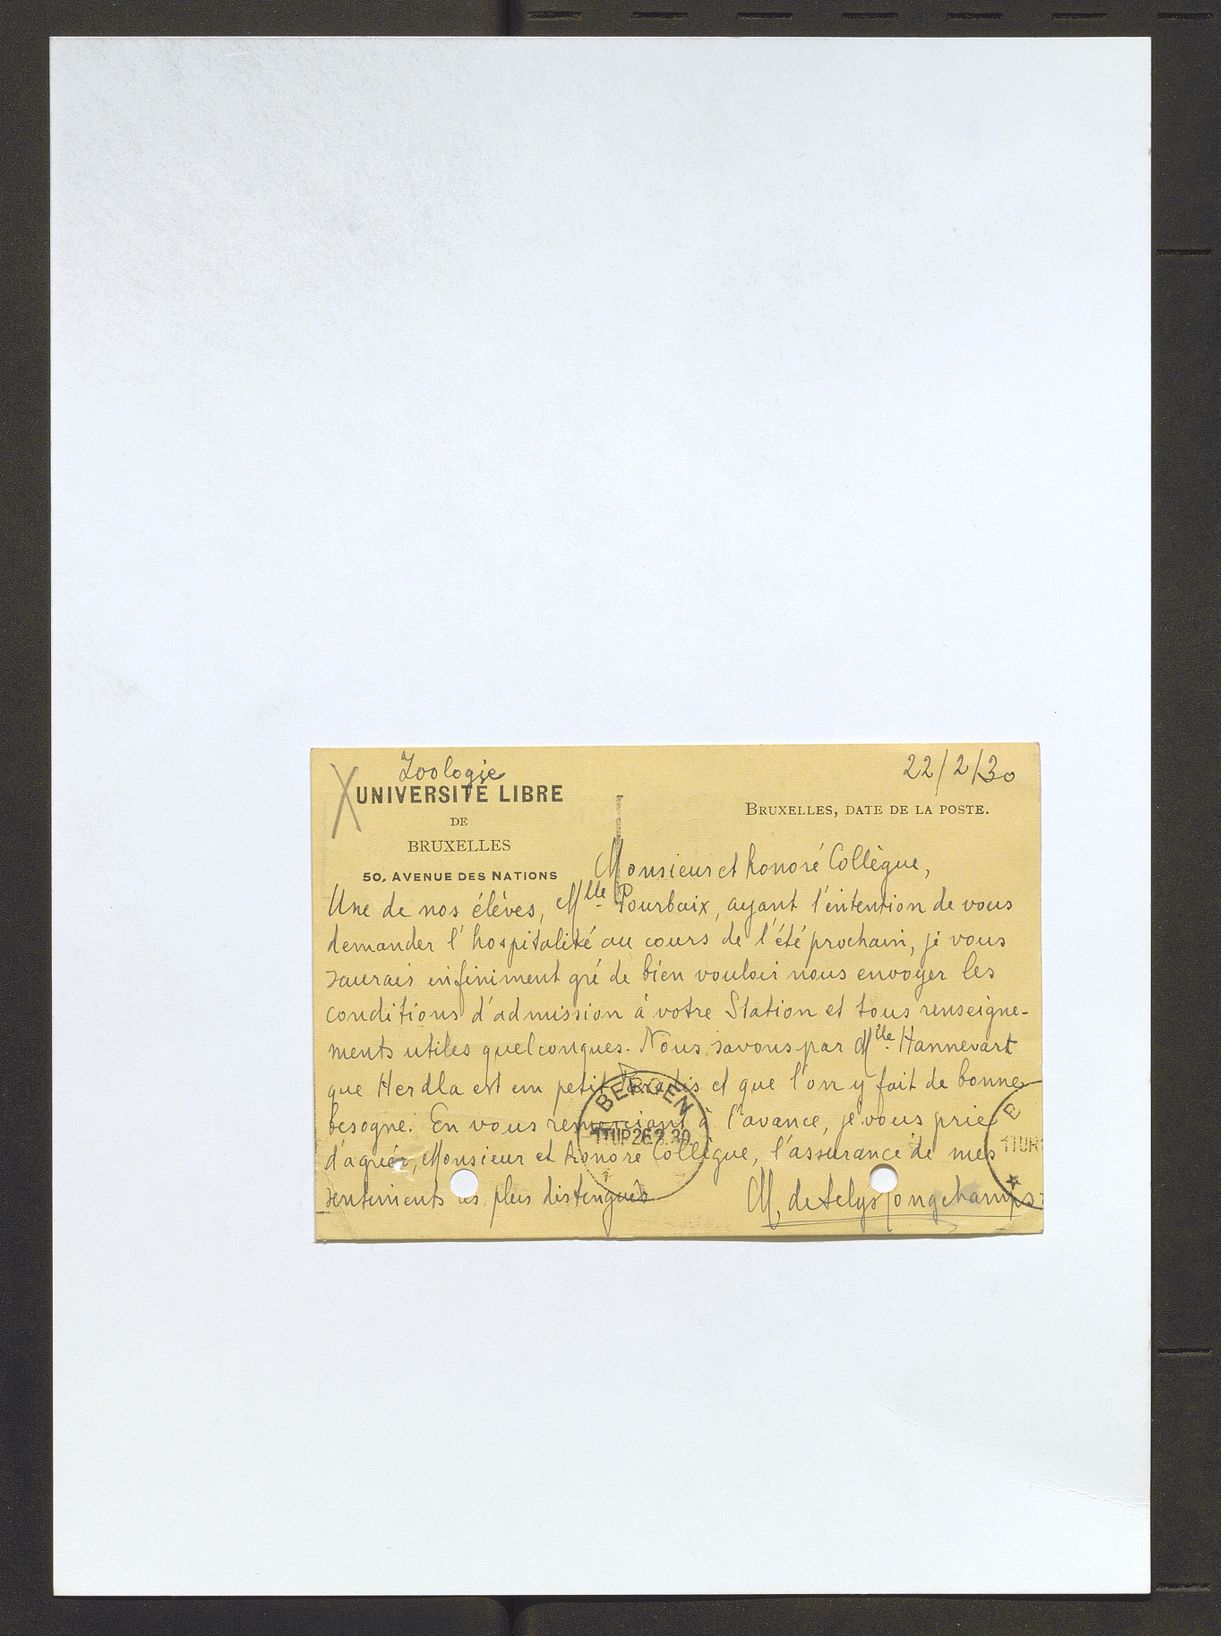 Zoologie
22/2/30
UNIVERSITÉ LIBRE
DE
BRUXELLES
50, AVENUE DES NATIONS
BRUXELLES, DATE DE LA POSTE.
Monsieur et honoré Collègue,
Une de nos élèves, Mlle Pourbaix, ayant l'intention de vous
demander l'hospitalité au cours de l'été prochain, je vous
saurais infiniment gré de bien vouloir nous envoyer les
conditions d'admission à votre Station et tous renseigne-
ments utiles quelconques. Nous savons par Mlle Hannevart
que Herdla est un petit Paradis et que l'on y fait de bonne
besogne. En vous remerciant à l'avance, je vous prie
d'agréer, Monsieur et honoré Collègue, l'assurance de mes
sentiments les plus distingués
M. de Selys Longchamps
BERGEN
11UP262.30